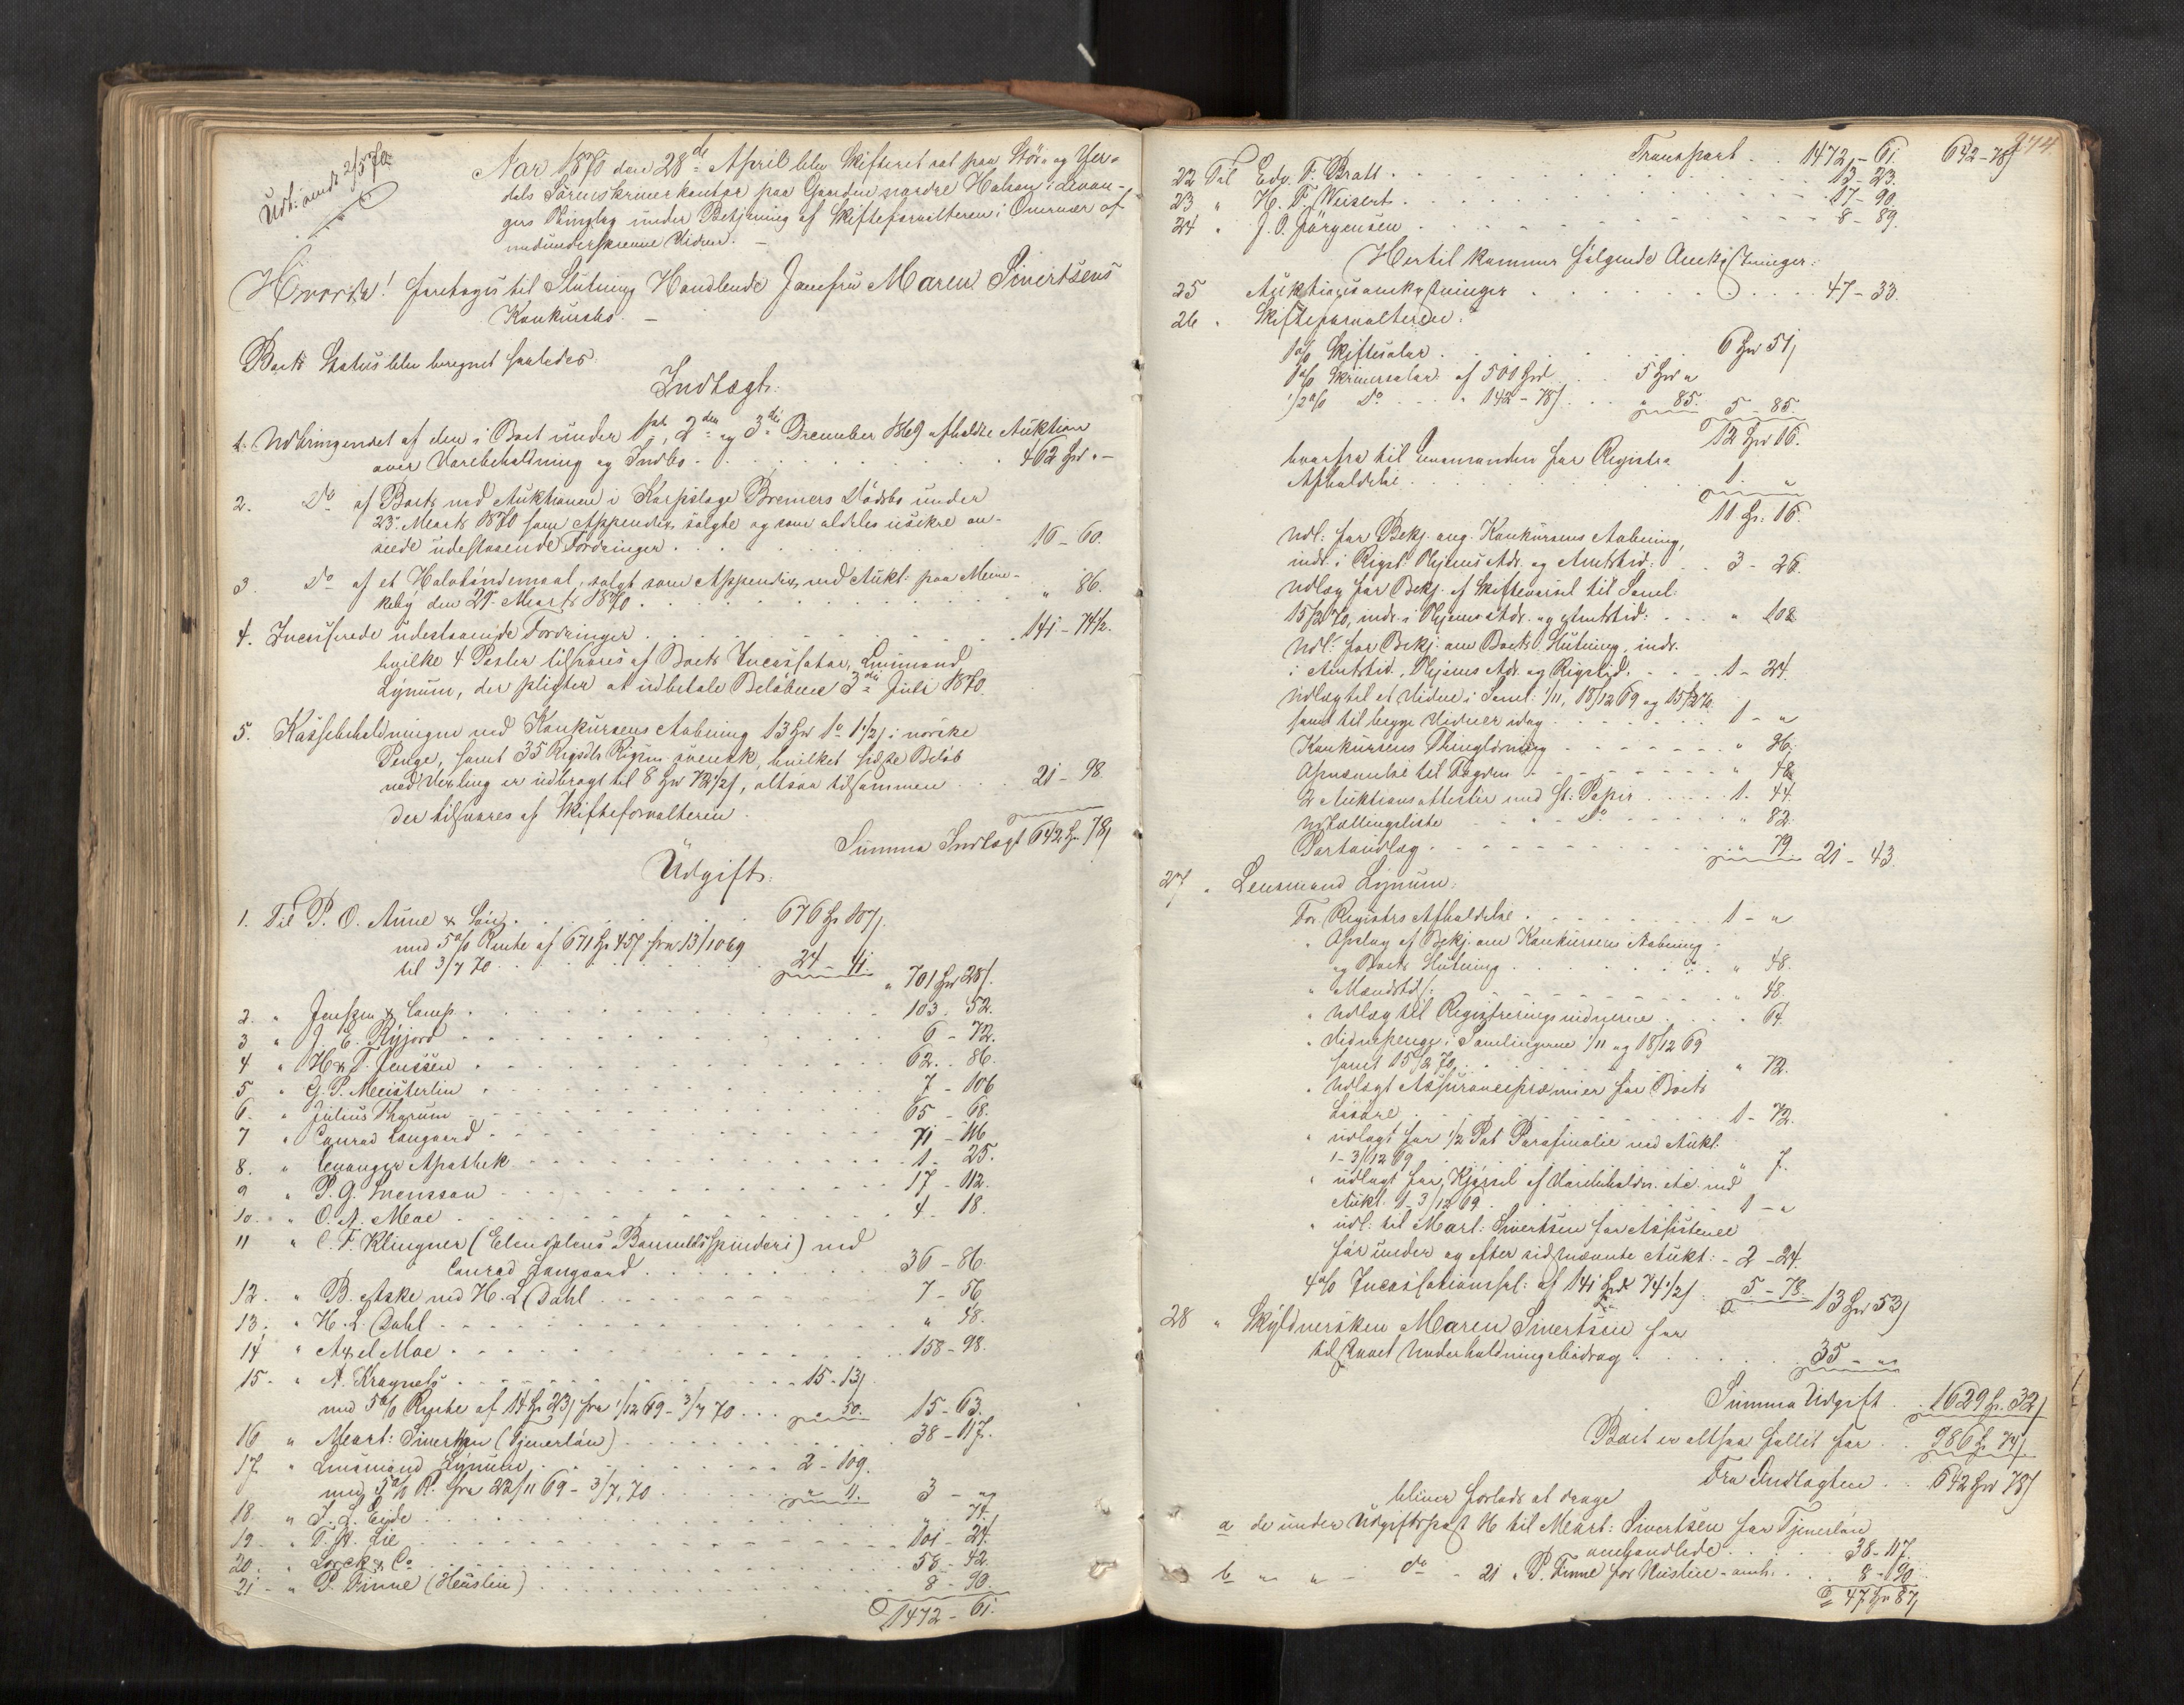 Udl: andr 2/5 70
Aar 1870 den 28de April blev Skifteret sat paa Stör- og Vær-
dals Sorenskriverkontor paa Gaarden nordre Halsan i Levan-
gers Thinglag under Betjening af Skifteforvalteren i Overvær af
medunderskrevne Vidner. –
Hvorda! foretoges til Slutning Handlende Jomfru Maren Sivertsens
Konkursbo. –
Boets Status blev beregnet saaledes:
Indtægt:
1. Udbringendet af den i Boet under 1ste, 2den og 3die December 1869 afholdte Auktion
over Varebeholdning og Indbo . . . 462 Spd. " –
2. Do af Boets ved Auktionen i Korpslæge Bremers Dödsbo under
23. Marts 1870 som Appendix solgte og som aldeles usikre an-
seede udestaaende Fordringer . . . 16 – 60.
3. Do af et Halvtöndemaal, solgt som Appendix ved Aukt: paa Meine-
keby den 29. Marts 1870 . . . " 86.
4. Incasserede udestaaende Fordringer . . . 141 – 74 1/2.
hvilke 4 Poster tilsvares af Boets Incassator, Lensmand
Lynum, der pligter at udbetale Belöbene 3die Juli 1870.
5. Kassebeholdningen ved Konkursens Aabning 13 Spd 1 o 1 1/2 s i norske
Penge, samt 35 Rigsdlr Rigsm svensk, hvilket sidste Belöb
ved Vexling er udbragt til 8 Spd 72 1/2 s, altsaa tilsammen . . . 21 – 98
der tilsvares af Skifteforvalteren.
Summa Indtægt 642 Sp 78 s
Udgift:
1. Til P. O. Aune & Sön . . . 676 Sp 107 s.
med 5% Rente af 671 Sp 45 s fra 13/10 69
til 3/7 70 . . . 24 – 41. " 701 Spd 28 s.
2. " Jenssen & Comp . . . 103. 52.
3 " J. C. Ryjord . . . 6 – 72.
4 " H & T. Jenssen . . . 62. 86.
5 " G. P. Meisterlin . . . 7 – 106
6. " Julius Thorum . . . 65 – 68.
7 " Conrad Langaard . . . 71 – 116
8. " Levanger Apothek . . . 1 – 25.
9 " P. G. Svensson . . . 17 – 112.
10. " O. A. Moe . . . 4 – 18.
11 " C. F. Klingner (Elendalens Bomuldsspinderi) ved
Conrad Langaard . . . 36 – 86.
12. " B. Aske ved H. L. Dahl . . . 7 – 56
13. " H. L. Dahl . . . " 48.
14 " Axel Moe . . . 158 – 98.
15. " A. Kragnels . . . 15 – 13 s
med 5% Rente af 14 Sp 23 s fra 1/12 69 – 3/7 70 . . . " 50. 15 – 63.
16 " Mart: Sivertsen (Tjenerlön) . . . 38 – 117.
17. " Lensmand Lynum . . . 2 – 109.
med 5% R. fra 22/11 69 – 3/7, 70 . . . " 11. 3 – "
18. " J. L. Eide . . . " 74.
19. " T. A. Lie . . . 101 – 24.
20. " Lorck & Co . . . 58 – 42
21 " P. Finne (Husleie) . . . 8 – 90.
1472 – 61.
974.
Transport . . 1472 – 61. 642 – 78 s
22 Til Edv. F. Bratt . . . 13 – 23.
23 " H. F. Weisert . . . 17 – 90.
24 " J. O. Jörgensen . . . 8 – 89.
Hertil kommer fölgende Omkostninger:
25 Auktionsomkostninger . . . 47 – 33.
26 . Skifteforvalteren:
1% Skiftesalar . . . 6 Spd 51 s
1% Skriversalar af 500 Spd . . 5 Spd "
1/2% Do . . " 142 – 78 s . . " 85. 5 – 85.
12 Spd 16.
hvorfra til Lensmanden for Registr.
Afholdelse . . . 1. "
11 Sp: 16.
Udl: for Bekj. ang. Konkursens Aabning,
indr. i Rigst. Thjems Adr. og Amtstid: . . 3 – 26.
Udlæg for Bekj. af Skiftevarsel til Saml:
15/2 70, indr. i Thjems Adr. og Amtstid: . . " 108
Udl: for Bekj. om Boets Slutning, indr.
i Amtstid., Thjems Adr. og Rigstid. . . 1 – 24.
Udlæg til et Vidne i Saml: 1/11, 18/12 69 og 15/2 70.
samt til begge Vidner idag . . . 1 – "
Konkursens Thinglæsning . . . " 36.
Opnævnelse til Fogden . . . " 48
2 Auktionsattester med st: Papir . . . 1. 44.
Udtællingsliste . . Do . . . " 82.
Portoudlæg . . . " 79. 21 – 43.
27 . Lensmand Lynum:
For Registrs Afholdelse . . . 1 – "
" Opslag af Bekj. om Konkursens Aabning
og Boets Slutning . . . " 48.
" Mændstils: . . . " 48.
" Udlæg til Registreringsvidnerne . . . " 64.
" Vidnepenge i Samlingerne 1/11 og 18/12 69
samt 15/2 70, . . . " 72.
" Udlagt Assurancepræmier for Boets
Lösöre . . . 1 – 72.
" udlagt for 1/2 Pot Parafinolie ved Aukt:
1 – 3/12 69 . . . " 7.
" udlagt for Kjörsel af Varebeholdn. etc. ved
Aukt. 1 – 3/12 69 . . . 1 – "
" udl: til Marl: Sivertsen for Assistence
för under og efter sidnævnte Aukt: – 2 – 24.
4% Incassationssal: af 141 Spd 74 1/2 s . 5 – 78. 13 Spd 53 s
28 " Skyldnersken Maren Sivertsen for
tilstaaet Underholdningsbidrag . . . 35 – "
Summa Udgift . . 1629 Sp. 32 s
Boet er altsaa fallit for . . 986 Sp 74 s
Fra Indtægten . . 642 Spd 78 s
bliver forlods at drage
a de under Udgiftspost 16 til Mart: Sivertsen for Tjenerlön
omhandlede . . . 38 – 117.
b " " – do – 21 " P. Finne for Husleie – omh. . . . 8 – 90.
47 Sp 87 s